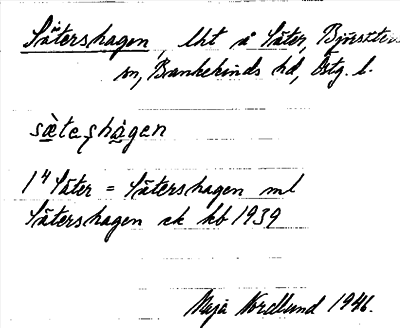 Sätershagen, lht å Säter, Björsäters
sn, Bankekinds hd, Östg. l.
sæ̀teṣhàgen
1⁴ Säter = Sätershagen ml
Sätershagen ek kb 1939
Maja Nordlund 1946.